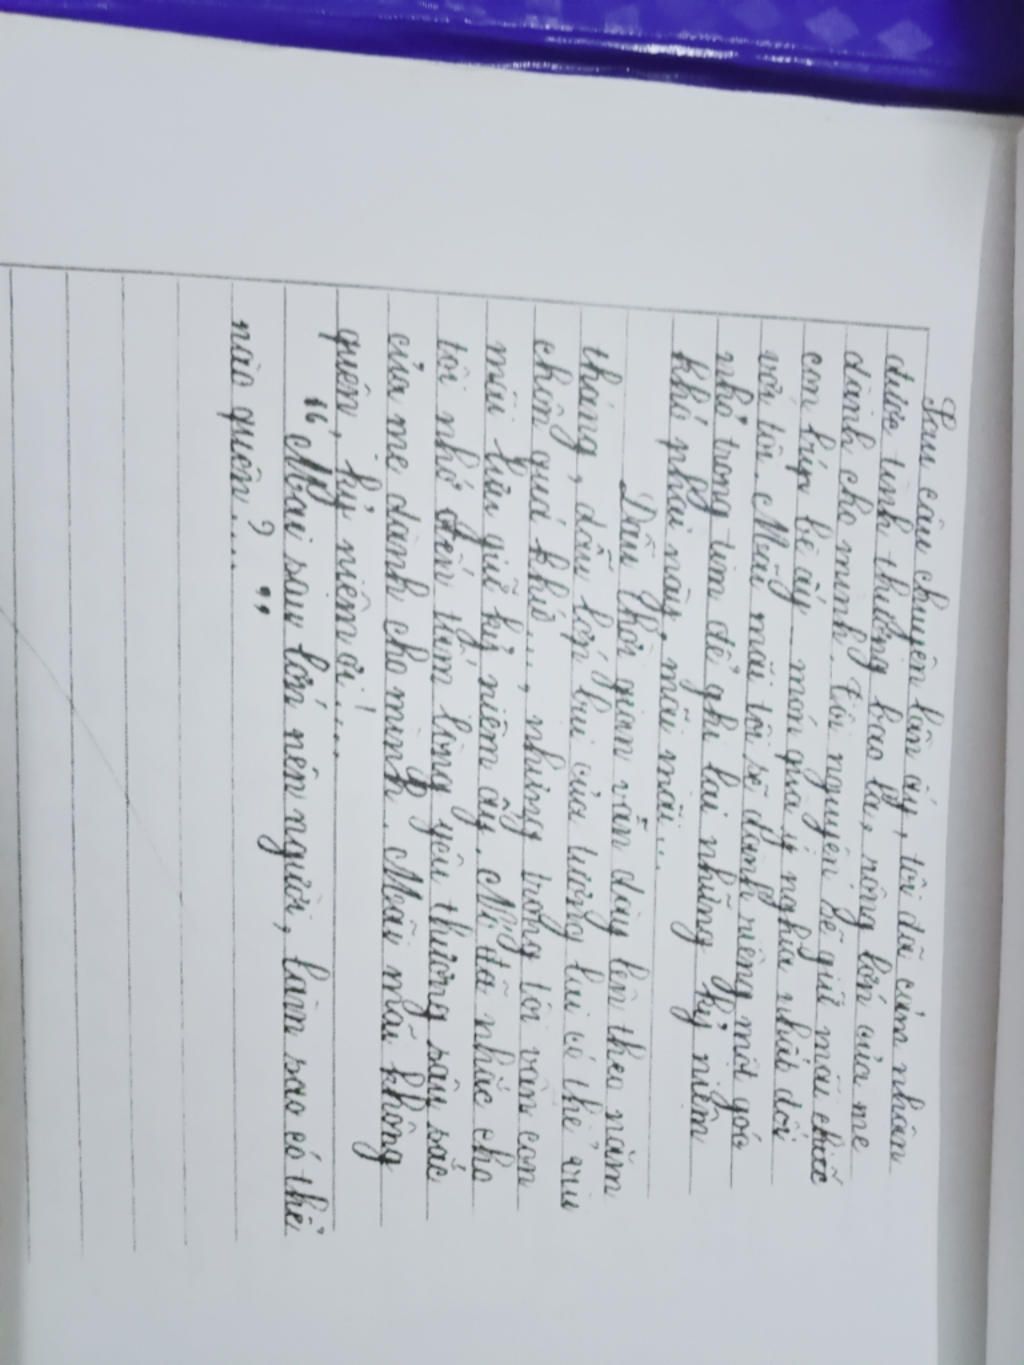 Sau câu chuyện lần ấy, tôi đã cảm nhận
được tình thương bao la, rộng lớn của mẹ
dành cho mình. Tôi nguyện sẽ giữ mãi chiếc
con búp bê ấy - món quà ý nghĩa nhất đối
với tôi. Mãi mãi tôi sẽ dành riêng một góc
nhỏ trong tim để ghi lại những kỷ niệm
khó phai này, mãi mãi...
Dẫu thời gian vẫn dày lên theo năm
tháng, dẫu lớp bụi của tương lai có thể
chôn quá khứ..., nhưng trong tôi vẫn còn
mãi lưu giữ kỷ niệm ấy. Nó đã nhắc cho
tôi nhớ đến tấm lòng yêu thương sâu sắc
của mẹ dành cho mình. Mãi mãi không
quên, kỷ niệm ơi!...
"Mai sau lớn nên người, làm sao có thể
nào quên...?"